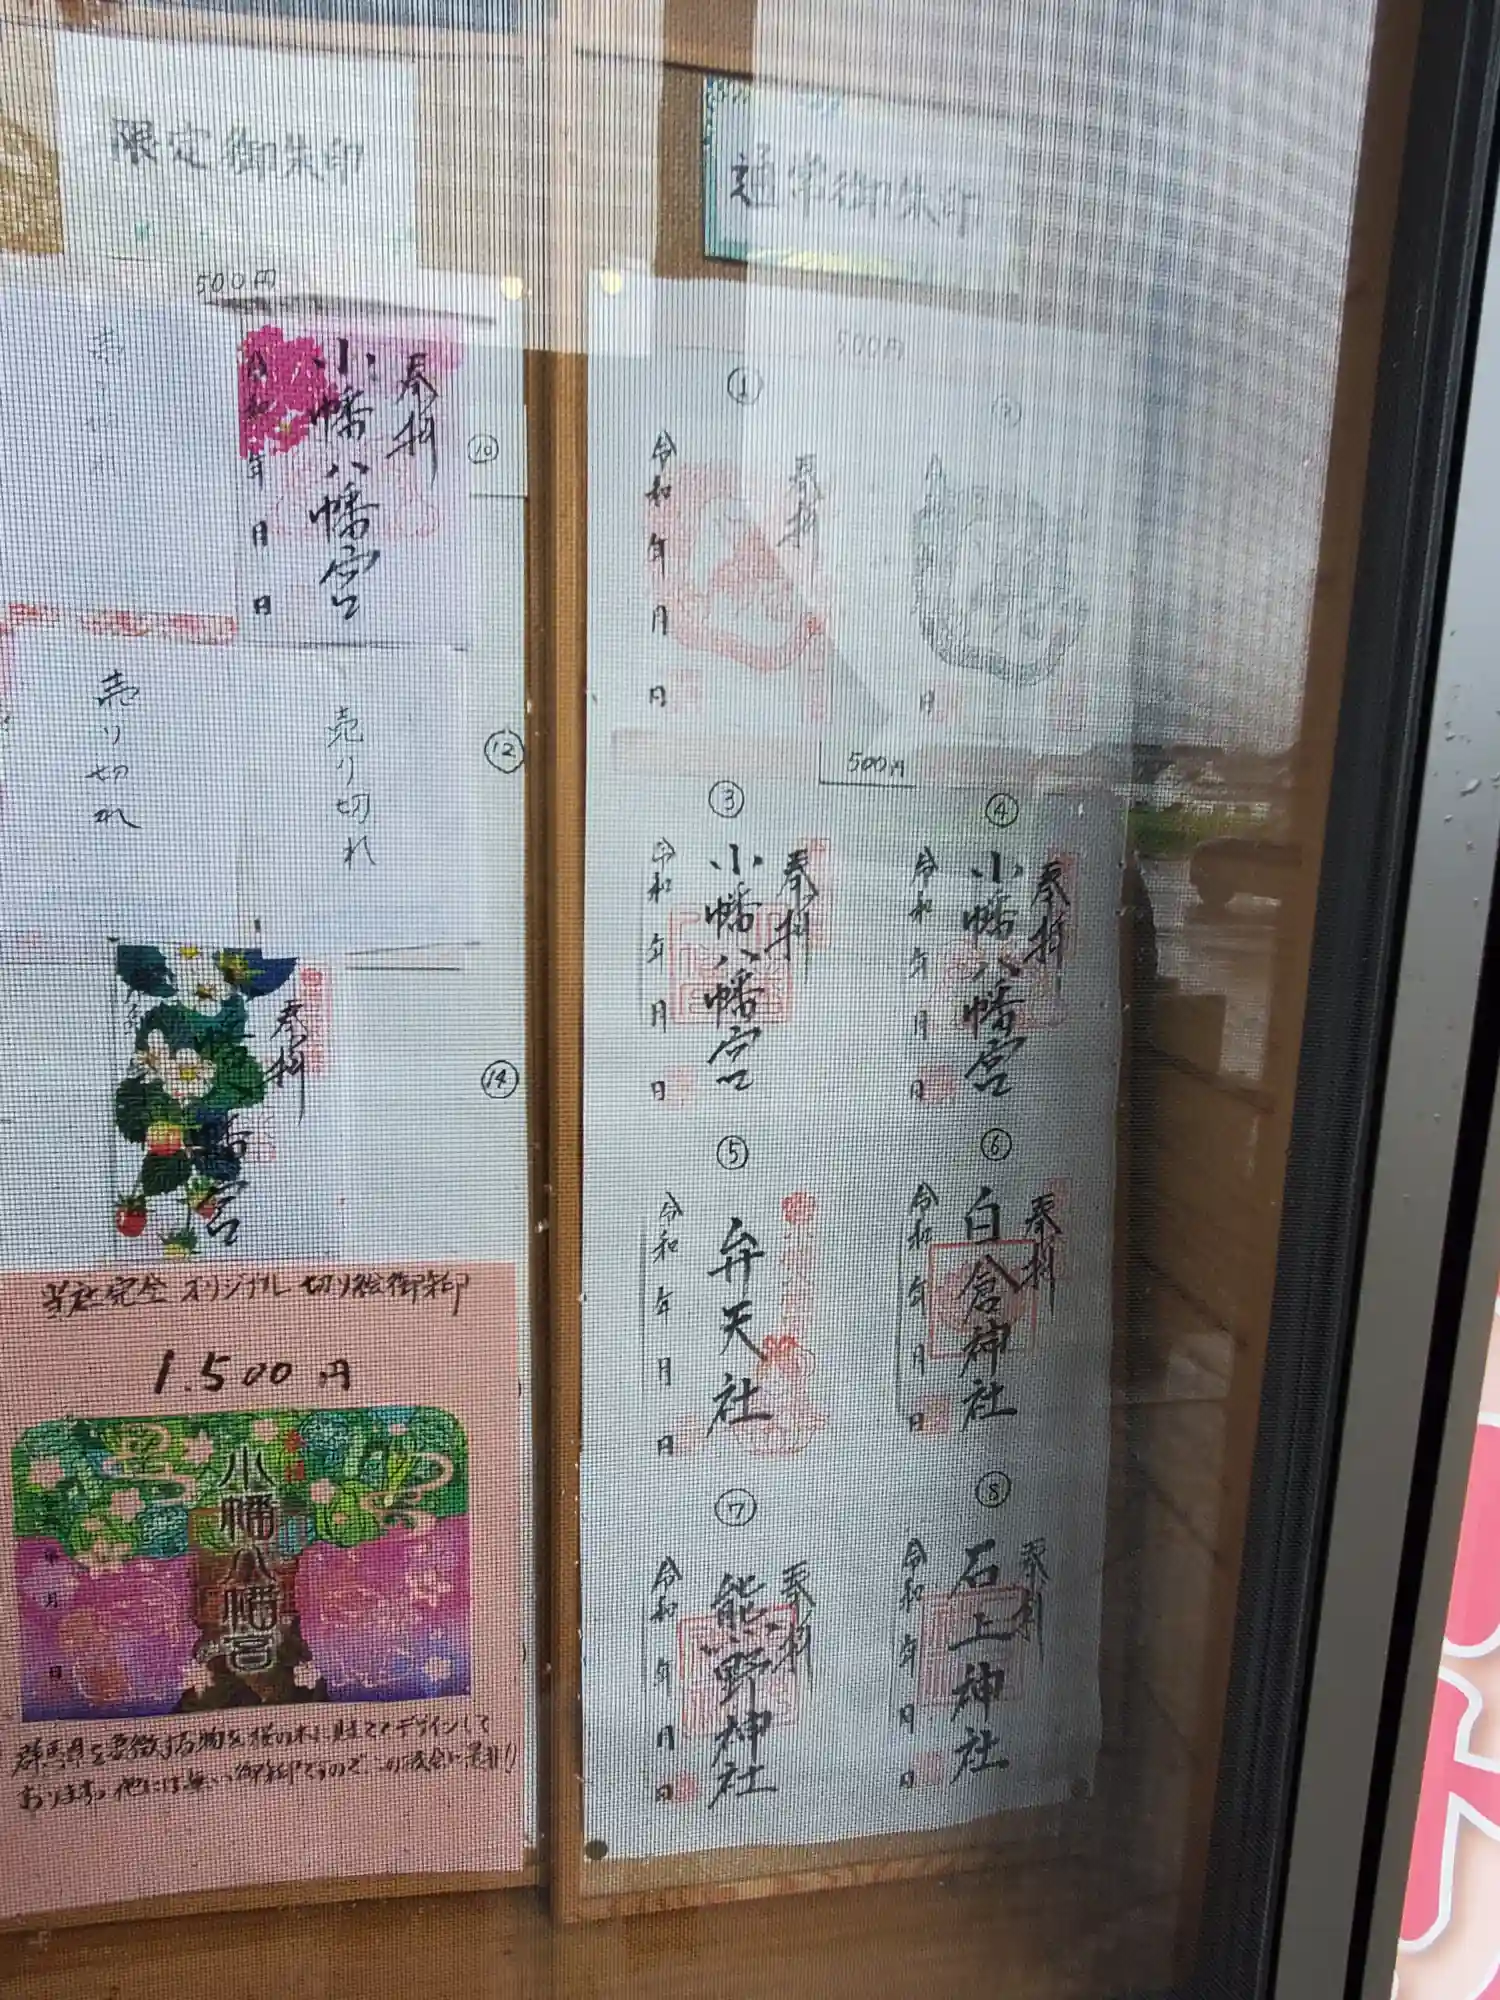 限定御朱印
500円
売り切れ
奉拝
小幡八幡宮
令和 年 月 日
⑩
売り切れ
売り切れ
⑫
奉拝
宮
⑭
当社完全オリジナル切り絵御朱印
1,500円
小幡八幡宮
年 月 日
群馬県を象徴する物を桜の木に見立てデザインして
おります。他には無い御朱印ですので、この機会に是非!!
通常御朱印
500円
①
奉拝
令和 年 月 日
②
日
500円
③
奉拝
小幡八幡宮
令和 年 月 日
④
奉拝
小幡八幡宮
令和 年 月 日
⑤
弁天社
令和 年 月 日
⑥
奉拝
白倉神社
令和 年 月 日
⑦
奉拝
熊野神社
令和 年 月 日
⑧
奉拝
石上神社
令和 年 月 日